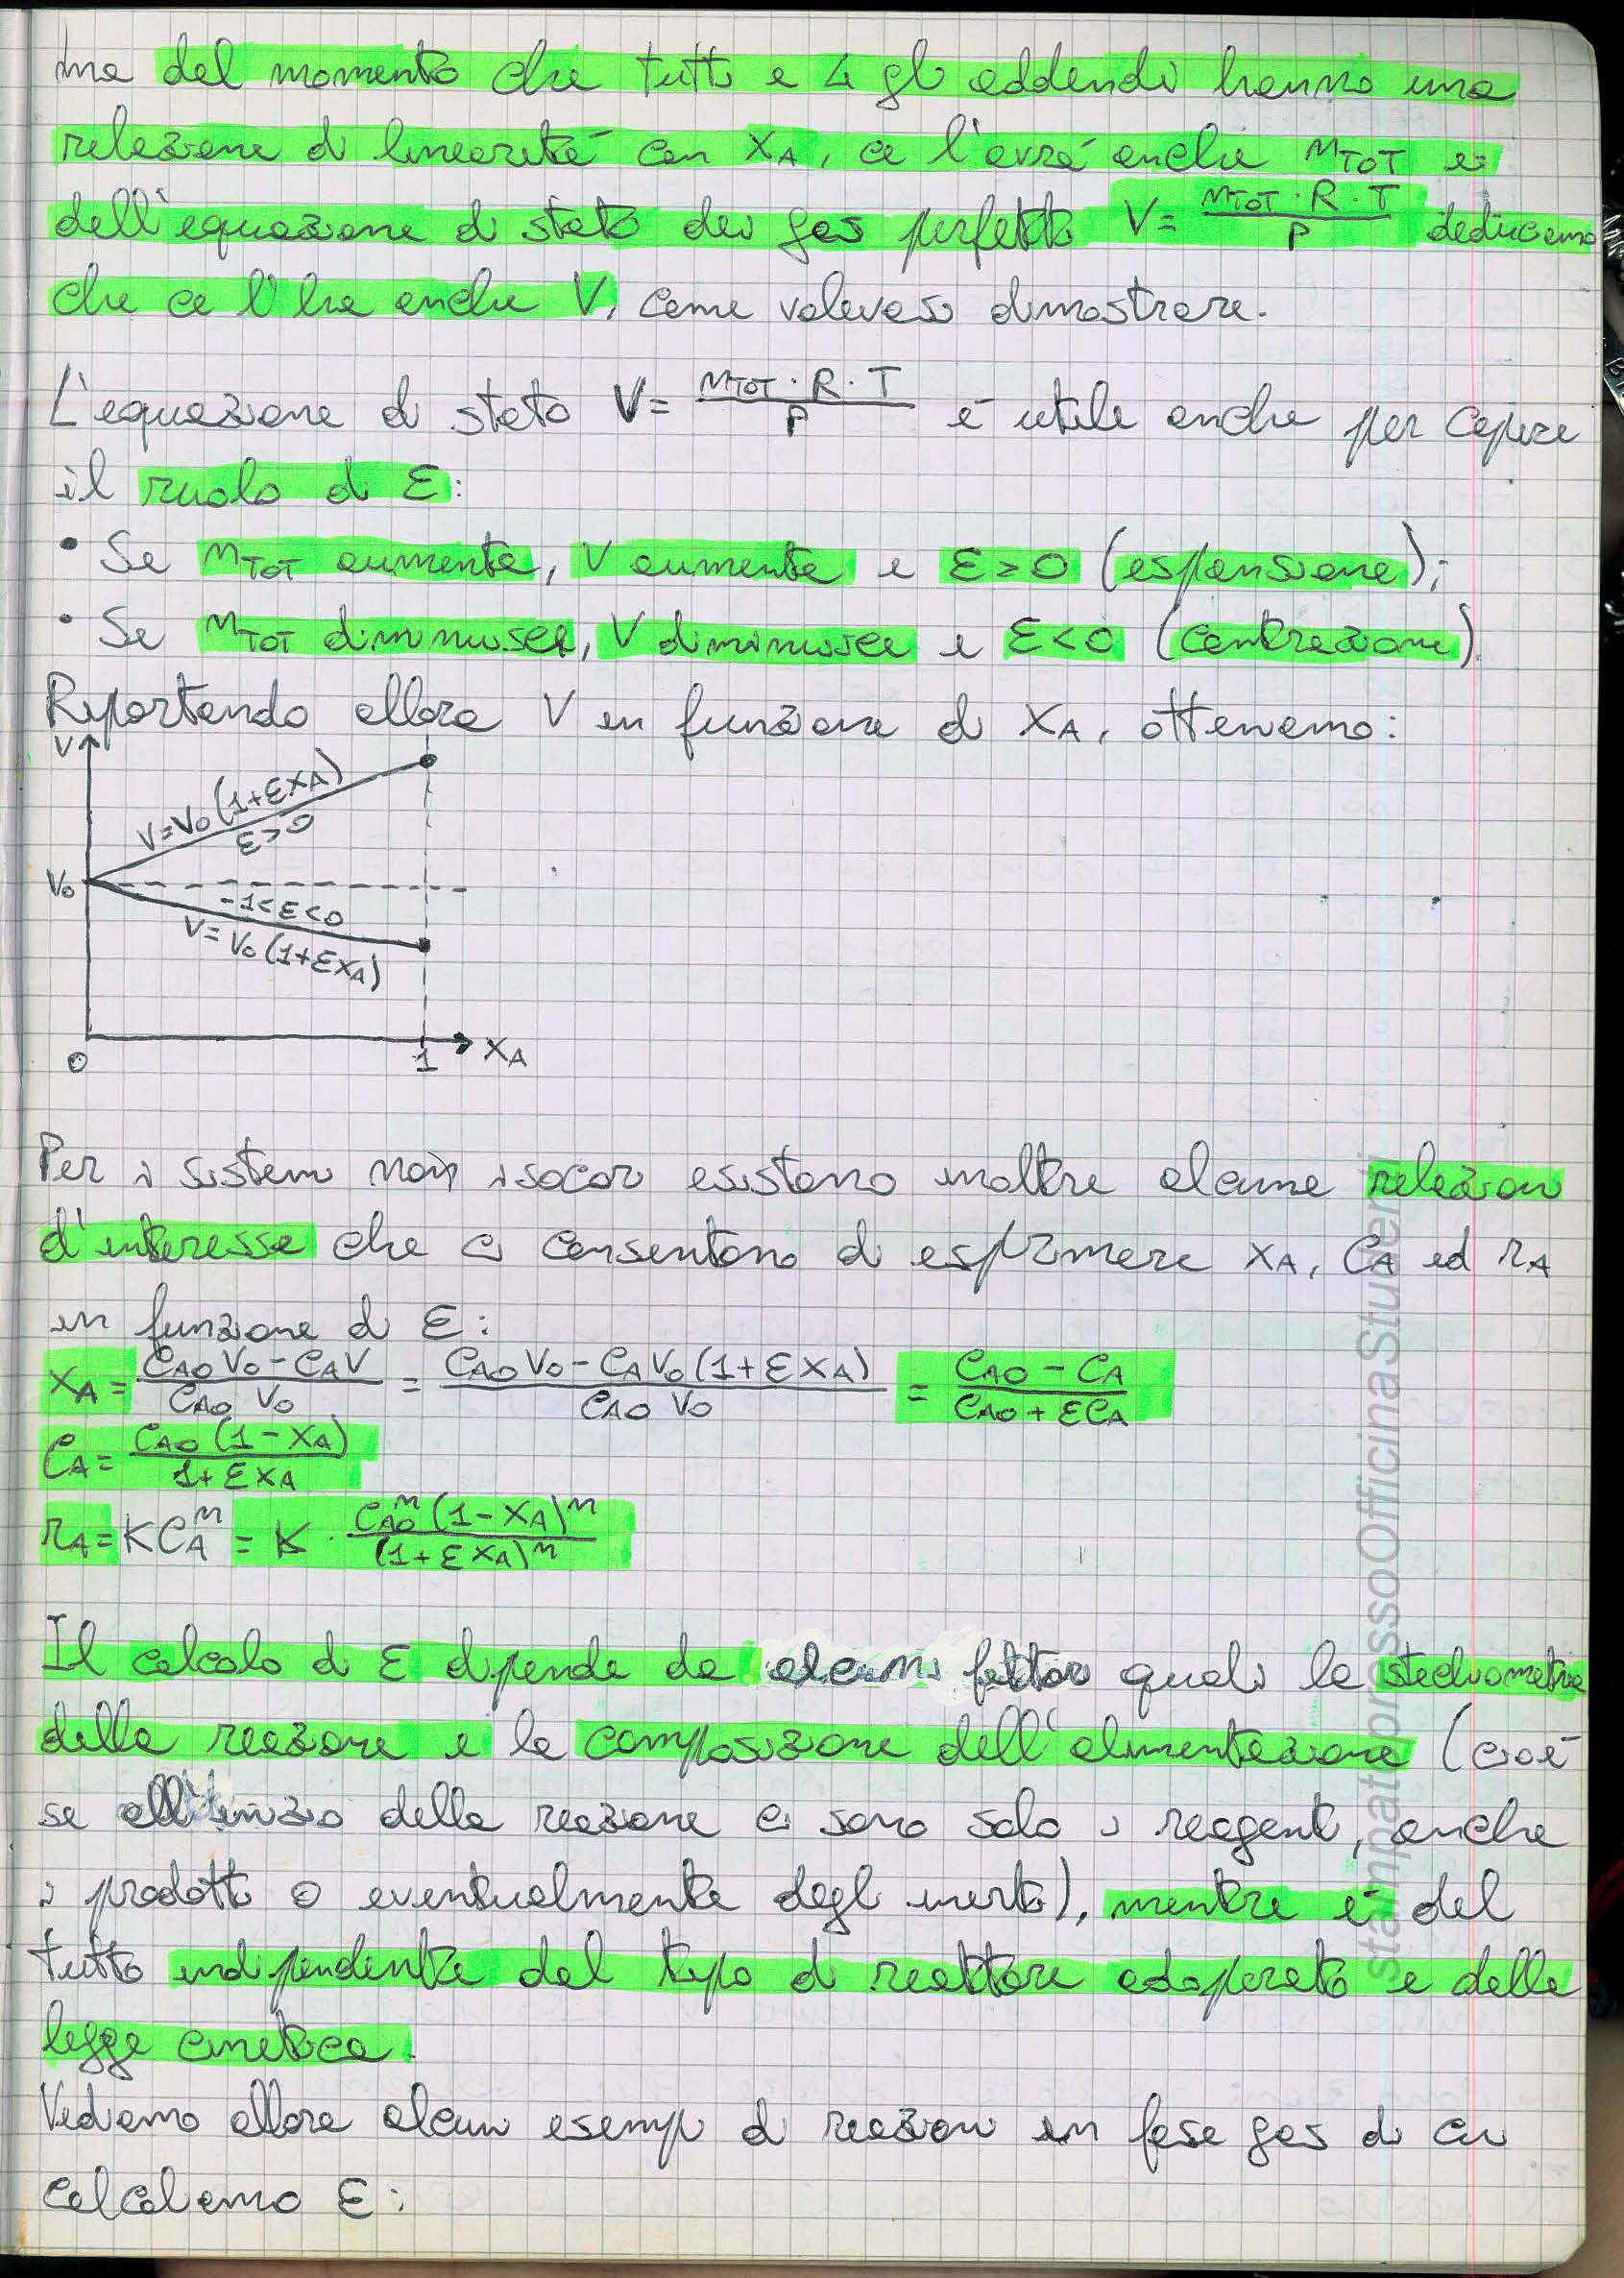 ma dal momento che tutti e 4 gli addendi hanno una
relazione di linearità con XA, ce l'avrà anche nTOT e
dall'equazione di stato dei gas perfetti V= nTOT·R·T / P deduciamo
che ce l'ha anche V, come volevasi dimostrare.
L'equazione di stato V= nTOT·R·T / P è utile anche per capire
il ruolo di ε:
• Se nTOT aumenta, V aumenta e ε>0 (espansione);
• Se nTOT diminuisce, V diminuisce e ε<0 (contrazione).
Riportando allora V in funzione di XA, otteniamo:
V
V=V0(1+εXA)
ε>0
V0
-1<ε<0
V=V0(1+εXA)
0 1 XA
Per i sistemi non isocori esistono inoltre alcune relazioni
d'interesse che ci consentono di esprimere XA, CA ed rA
in funzione di ε:
XA = (CA0 V0 - CA V) / (CA0 V0) = (CA0 V0 - CA V0(1+εXA)) / (CA0 V0) = (CA0 - CA) / (CA0 + εCA)
CA = CA0(1-XA) / (1+εXA)
rA = KCA^n = K · CA0^n (1-XA)^n / (1+εXA)^n
Il calcolo di ε dipende da alcuni fattori quali la stechiometria
della reazione e la composizione dell'alimentazione (cioè
se all'inizio della reazione ci sono solo i reagenti, anche
i prodotti o eventualmente degli inerti), mentre è del
tutto indipendente dal tipo di reattore adoperato e dalla
legge cinetica.
Vediamo allora alcuni esempi di reazioni in fase gas di cui
calcoliamo ε:
stampatopressoOfficinaStudenti